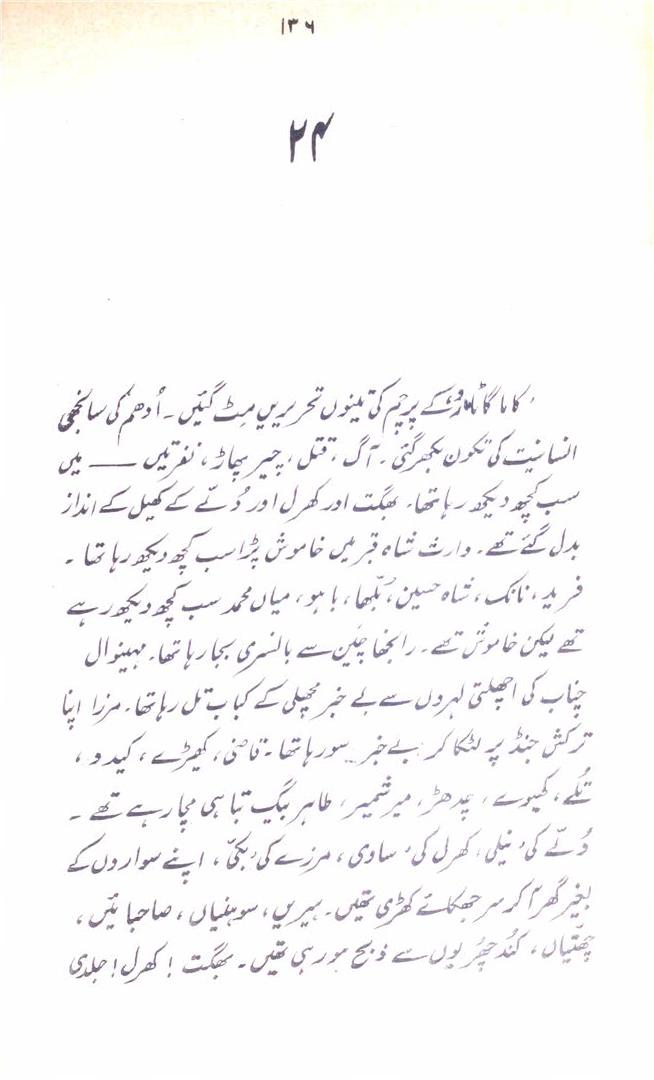 ۱۳۶
۲۴
’کاما گاٹا مارو‘ کے پرچم کی تینوں تحریریں مِٹ گئیں۔ اُدھم کی سانجھی
انسانیت کی تکون بکھر گئی۔ آگ، قتل، چیر پھاڑ، نفرتیں —— میں
سب کچھ دیکھ رہا تھا۔ بھگت اور کھرل اور دُلّے کے کھیل کے انداز
بدل گئے تھے۔ وارث شاہ قبر میں خاموش پڑا سب کچھ دیکھ رہا تھا۔
فرید، نانک، شاہ حسین، بُلّھا، باہو، میاں محمد سب کچھ دیکھ رہے
تھے لیکن خاموش تھے۔ رانجھا چَین سے بانسری بجا رہا تھا۔ مہینوال
چناب کی اچھلتی لہروں سے بے خبر مچھلی کے کباب تل رہا تھا۔ مرزا اپنا
ترکش جنڈ پر لٹکا کر بے خبر سو رہا تھا۔ قاضی، کھیڑے، کیدو،
تُلے، کھیوے، چدھڑ، میر شمیر، طاہر بیگ تباہی مچا رہے تھے۔
دُلّے کی ’نیلی‘، کھرل کی ’ساوی‘، مرزے کی ’بکّی‘، اپنے سواروں کے
بغیر گھر آ کر سر جھکائے کھڑی تھیں۔ ہیریں، سوہنیاں، صاحبائیں،
چھتیاں، کُند چھُریوں سے ذبح ہو رہی تھیں۔ بھگت! کھرل! جلدی